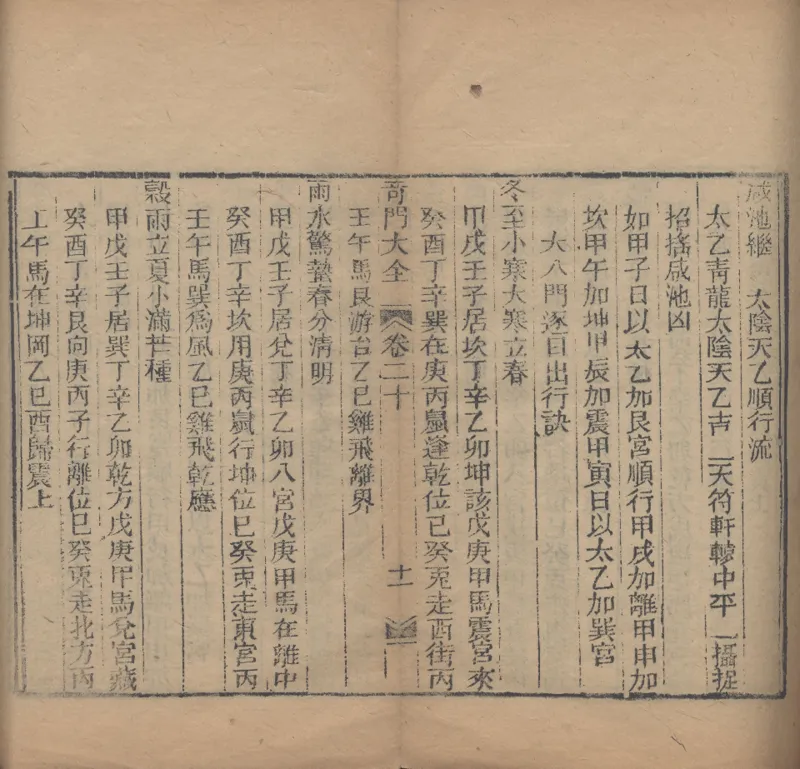 咸池繼　太陰天乙順行流
太乙靑龍太陰天乙吉　天符軒轅中平　攝提
招搖咸池凶
如甲子日以太乙加艮宮順行甲戌加離甲申加
坎甲午加坤甲辰加震甲寅日以太乙加巽宮
大八門逐日出行訣
冬至小寒大寒立春
甲戊壬子居坎丁辛乙卯坤該戊庚甲馬震宮來
癸酉丁辛巽在庚丙鼠逢乾位己癸兎走西街丙
奇門大全　卷二十　十一
壬午馬艮游台乙巳雞飛離界
雨水驚蟄春分淸明
甲戊壬子居兌丁辛乙卯八宮戊庚甲馬在離中
癸酉丁辛坎用庚丙鼠行坤位巳癸兎走東宮丙
壬午馬巽爲風乙巳雞飛乾應
穀雨立夏小滿芒種
甲戊壬子居巽丁辛乙卯乾方戊庚甲馬兌宮藏
癸酉丁辛艮向庚丙子行離位巳癸兎走北方丙
上午馬在坤岡乙巳酉歸震上